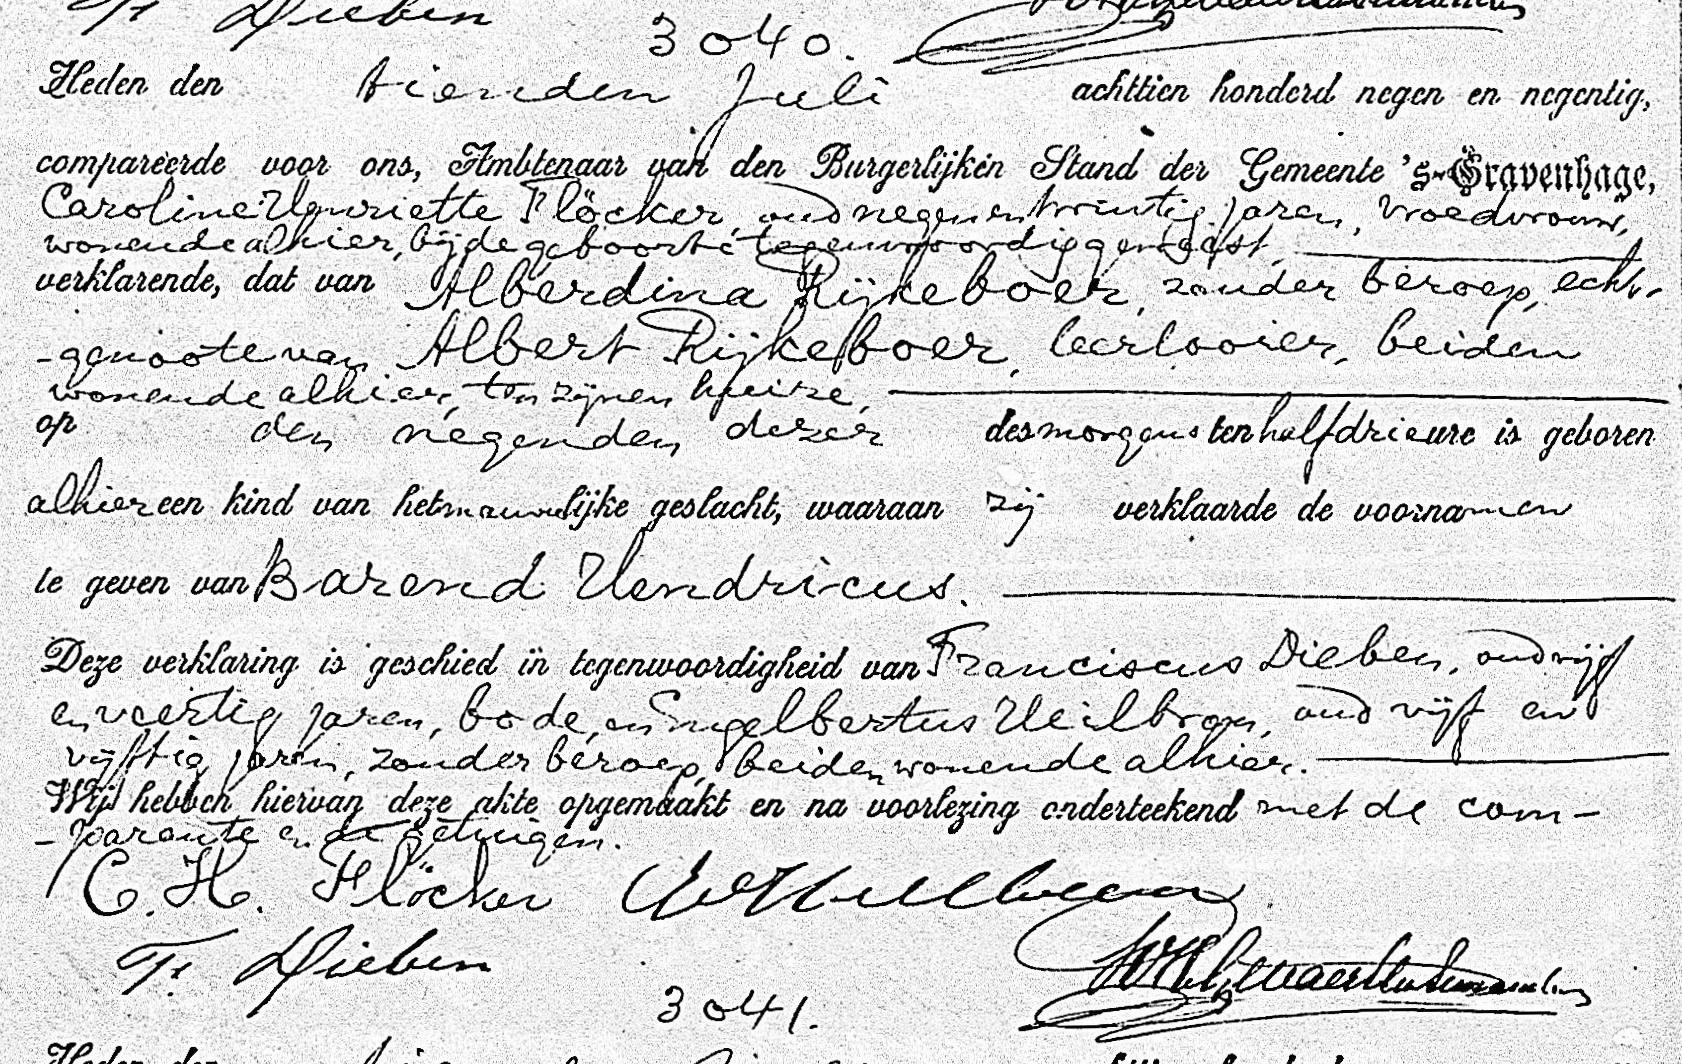 F. Dieben
3040.
Heden den tienden Juli achttien honderd negen en negentig,
compareerde voor ons, Ambtenaar van den Burgerlijken Stand der Gemeente 's-Gravenhage,
Caroline Henriette Flöcker, oud negenentwintig jaren, vroedvrouw,
wonende alhier, bij de geboorte tegenwoordig geweest,
verklarende, dat van Alberdina Rijkeboer, zonder beroep, echt-
-genoote van Albert Rijkeboer, leerlooier, beiden
wonende alhier, ten zijnen huize,
op den negenden dezer des morgens ten half drie ure is geboren
alhier een kind van het mannelijke geslacht, waaraan zij verklaarde de voornamen
te geven van Barend Hendricus.
Deze verklaring is geschied in tegenwoordigheid van Franciscus Dieben, oud vijf
en veertig jaren, bode, en Engelbertus Heilbron, oud vijf en
vijftig jaren, zonder beroep, beiden wonende alhier.
Wij hebben hiervan deze akte opgemaakt en na voorlezing onderteekend met de com-
-parante en de getuigen.
C. H. Flöcker
F. Dieben
3041.
Heden den